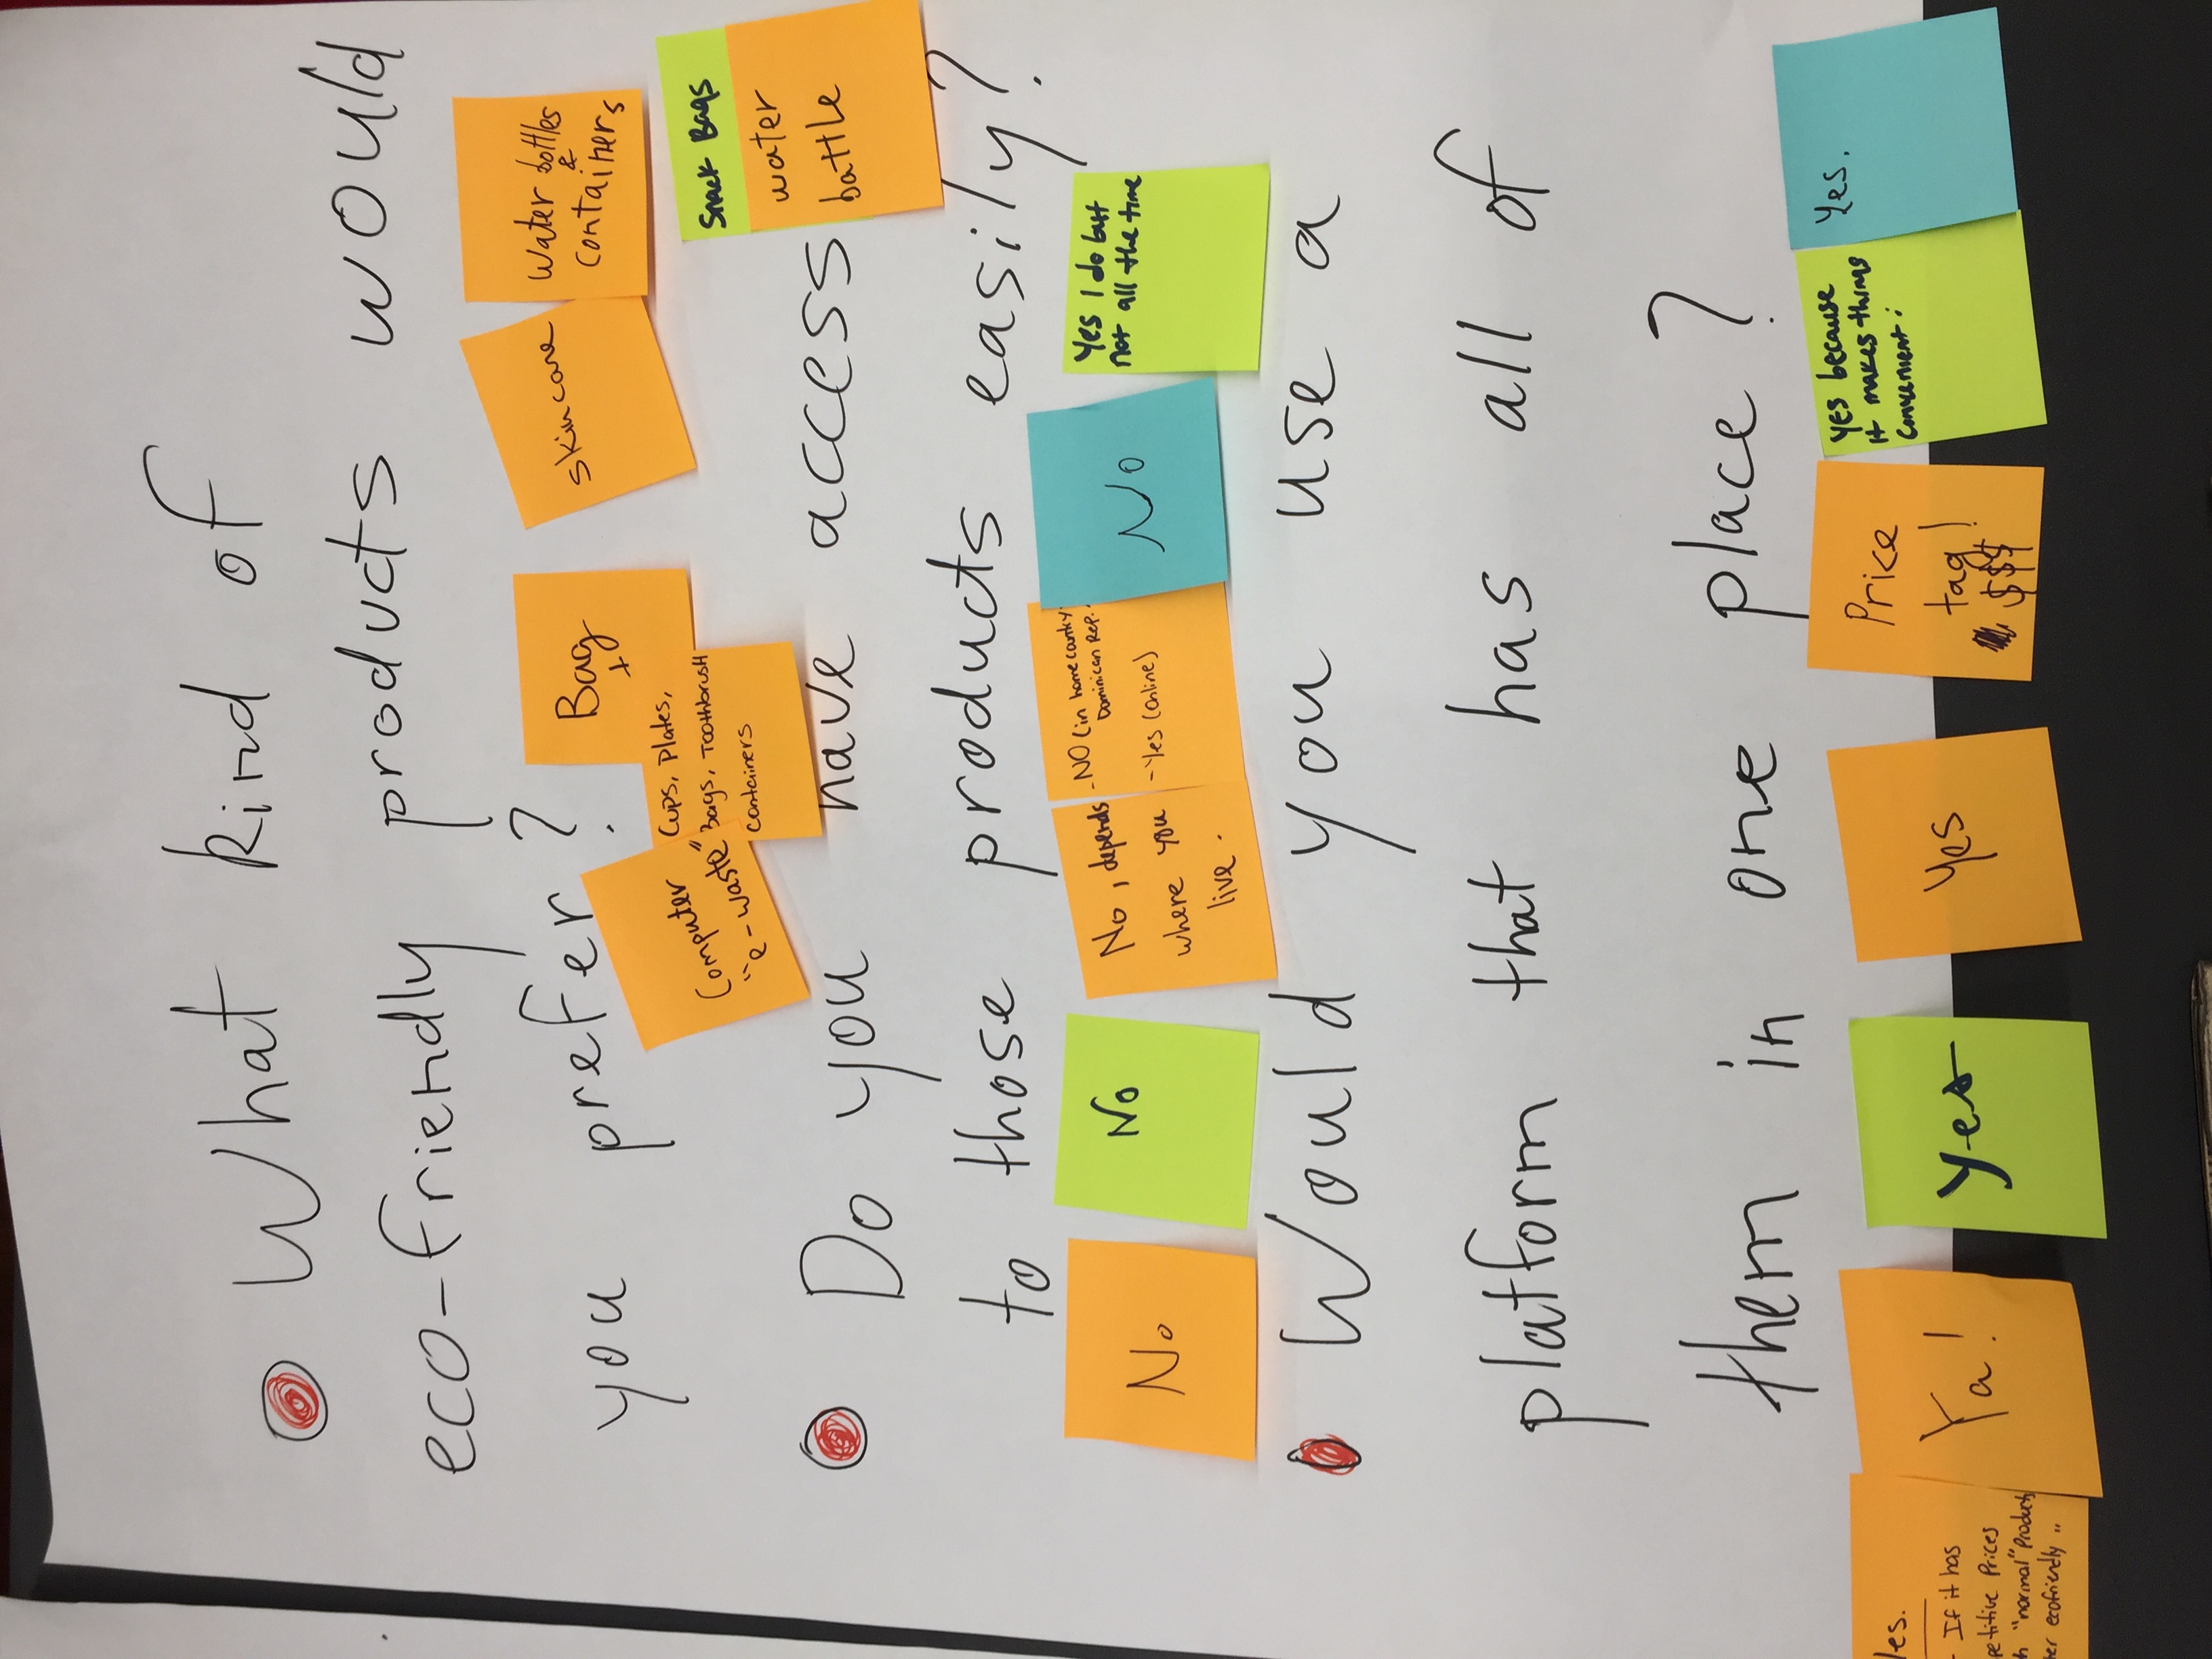 What kind of
eco-friendly products would
you prefer?
Computer
"e-waste"
Bag
+
Cups, Plates,
Bags, Toothbrush
containers
skincare
Water bottles
&
containers
Snack Bags
water
battle
Do you have access
to those products easily?
No
No
No, depends
where you
live.
-NO (in home country
Dominican Rep.
-Yes (online)
No
Yes I do but
not all the time
Would you use a
platform that has all of
them in one place?
- If it has
Prices
"normal" Products
ecofriendly
Ya!
Yes
Yes
Price
tag!
$$$
YES because
it makes things
convenient
Yes.